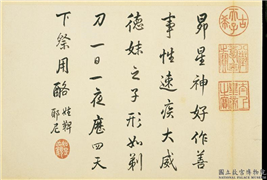 昴星神好作善
事性速疾大威
德姊之子形如剃
刀一日一夜歷四天
下祭用酪
姓鞞
耶尼
國立故宮博物院
NATIONAL PALACE MUSEUM